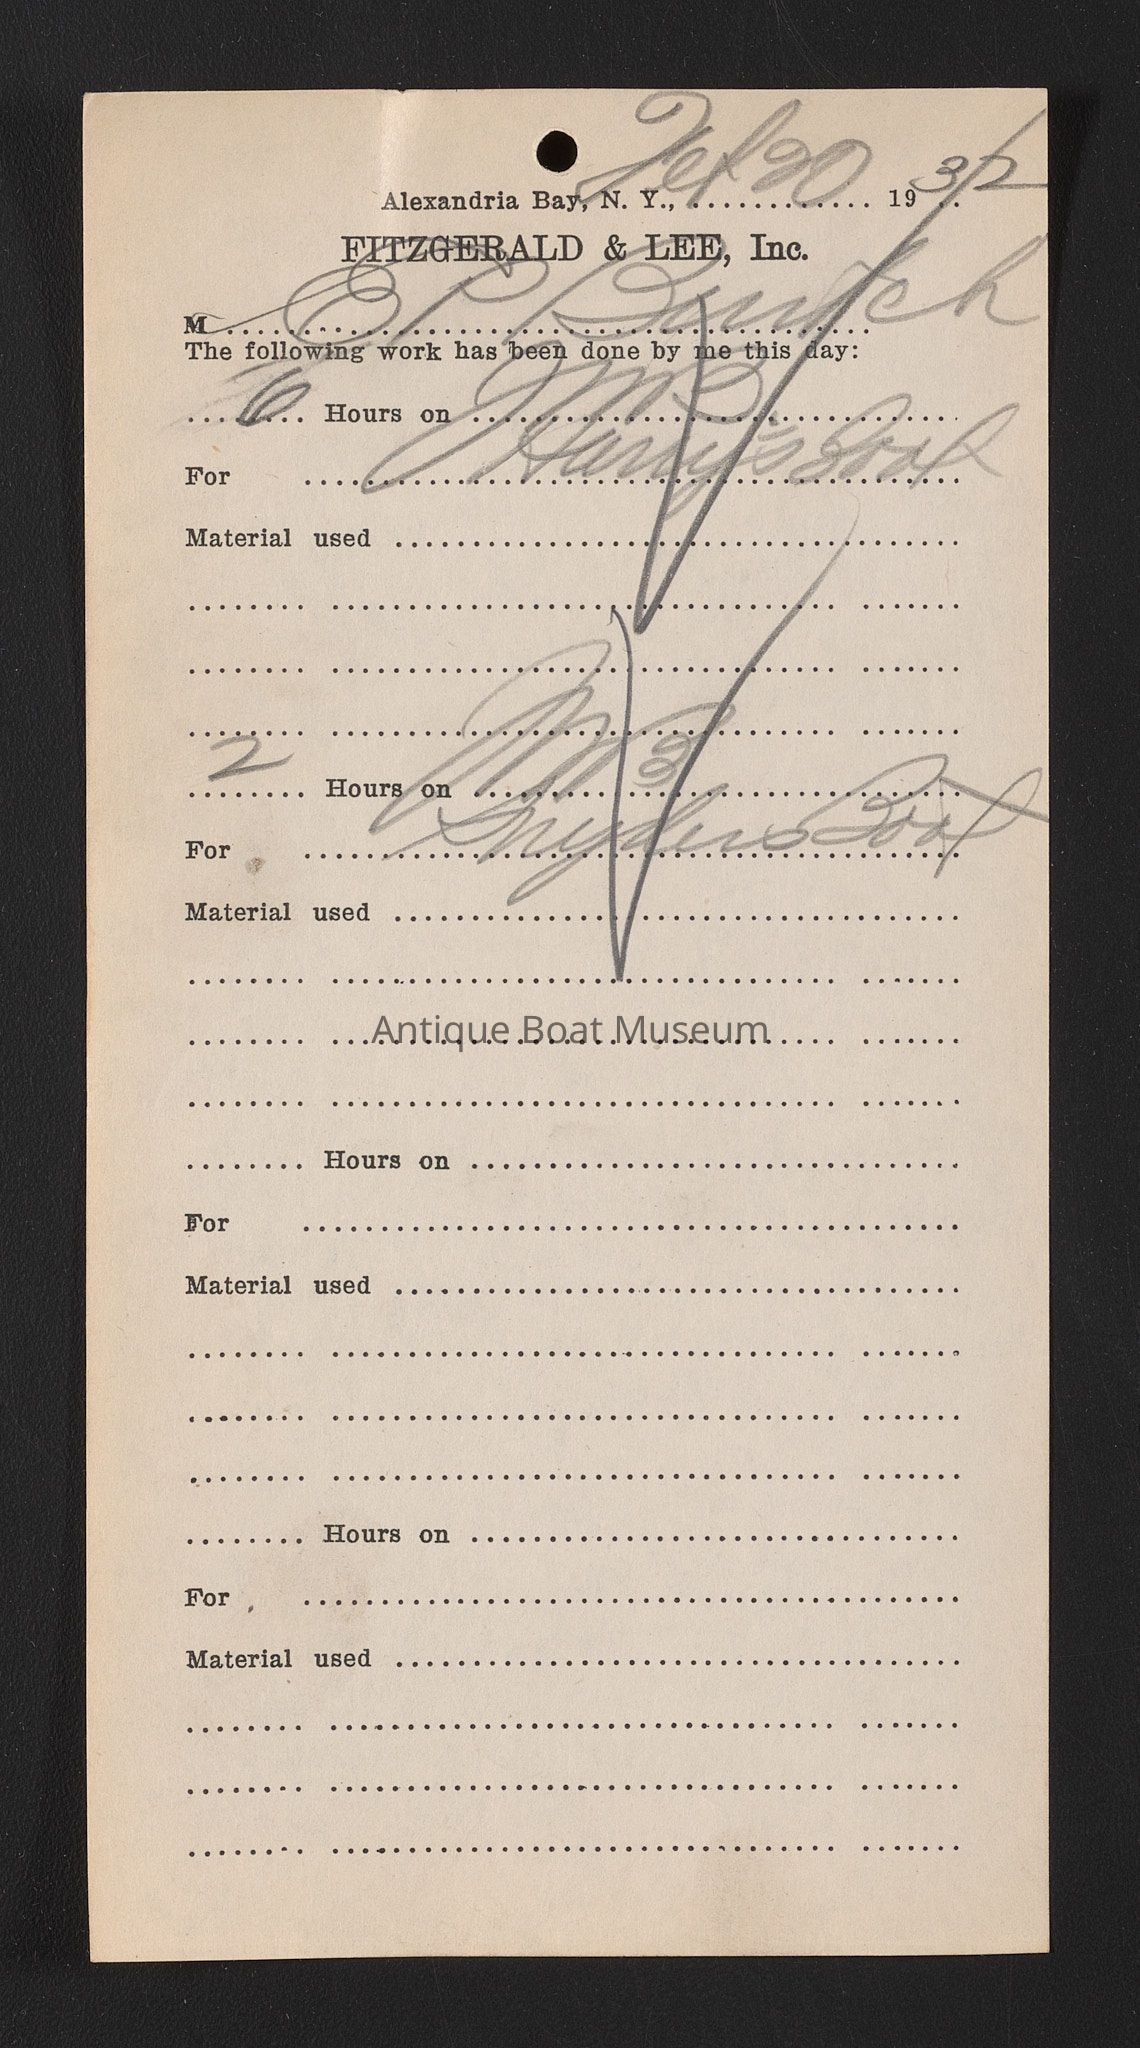 Feb 20
Alexandria Bay, N. Y., ............ 19 32
FITZGERALD & LEE, Inc.
M E P Burtch
The following work has been done by me this day:
6 Hours on No 2
For Harry's Boat
Material used ....................................
........ ................................ .......
........ ................................ .......
........ ................................ .......
2 Hours on No 3
For Snyders Boat
Material used ....................................
........ ................................ .......
Antique Boat Museum
........ ................................ .......
........ ................................ .......
........ Hours on ................................
For ..........................................
Material used ....................................
........ ................................ .......
........ ................................ .......
........ ................................ .......
........ Hours on ................................
For ..........................................
Material used ....................................
........ ................................ .......
........ ................................ .......
........ ................................ .......